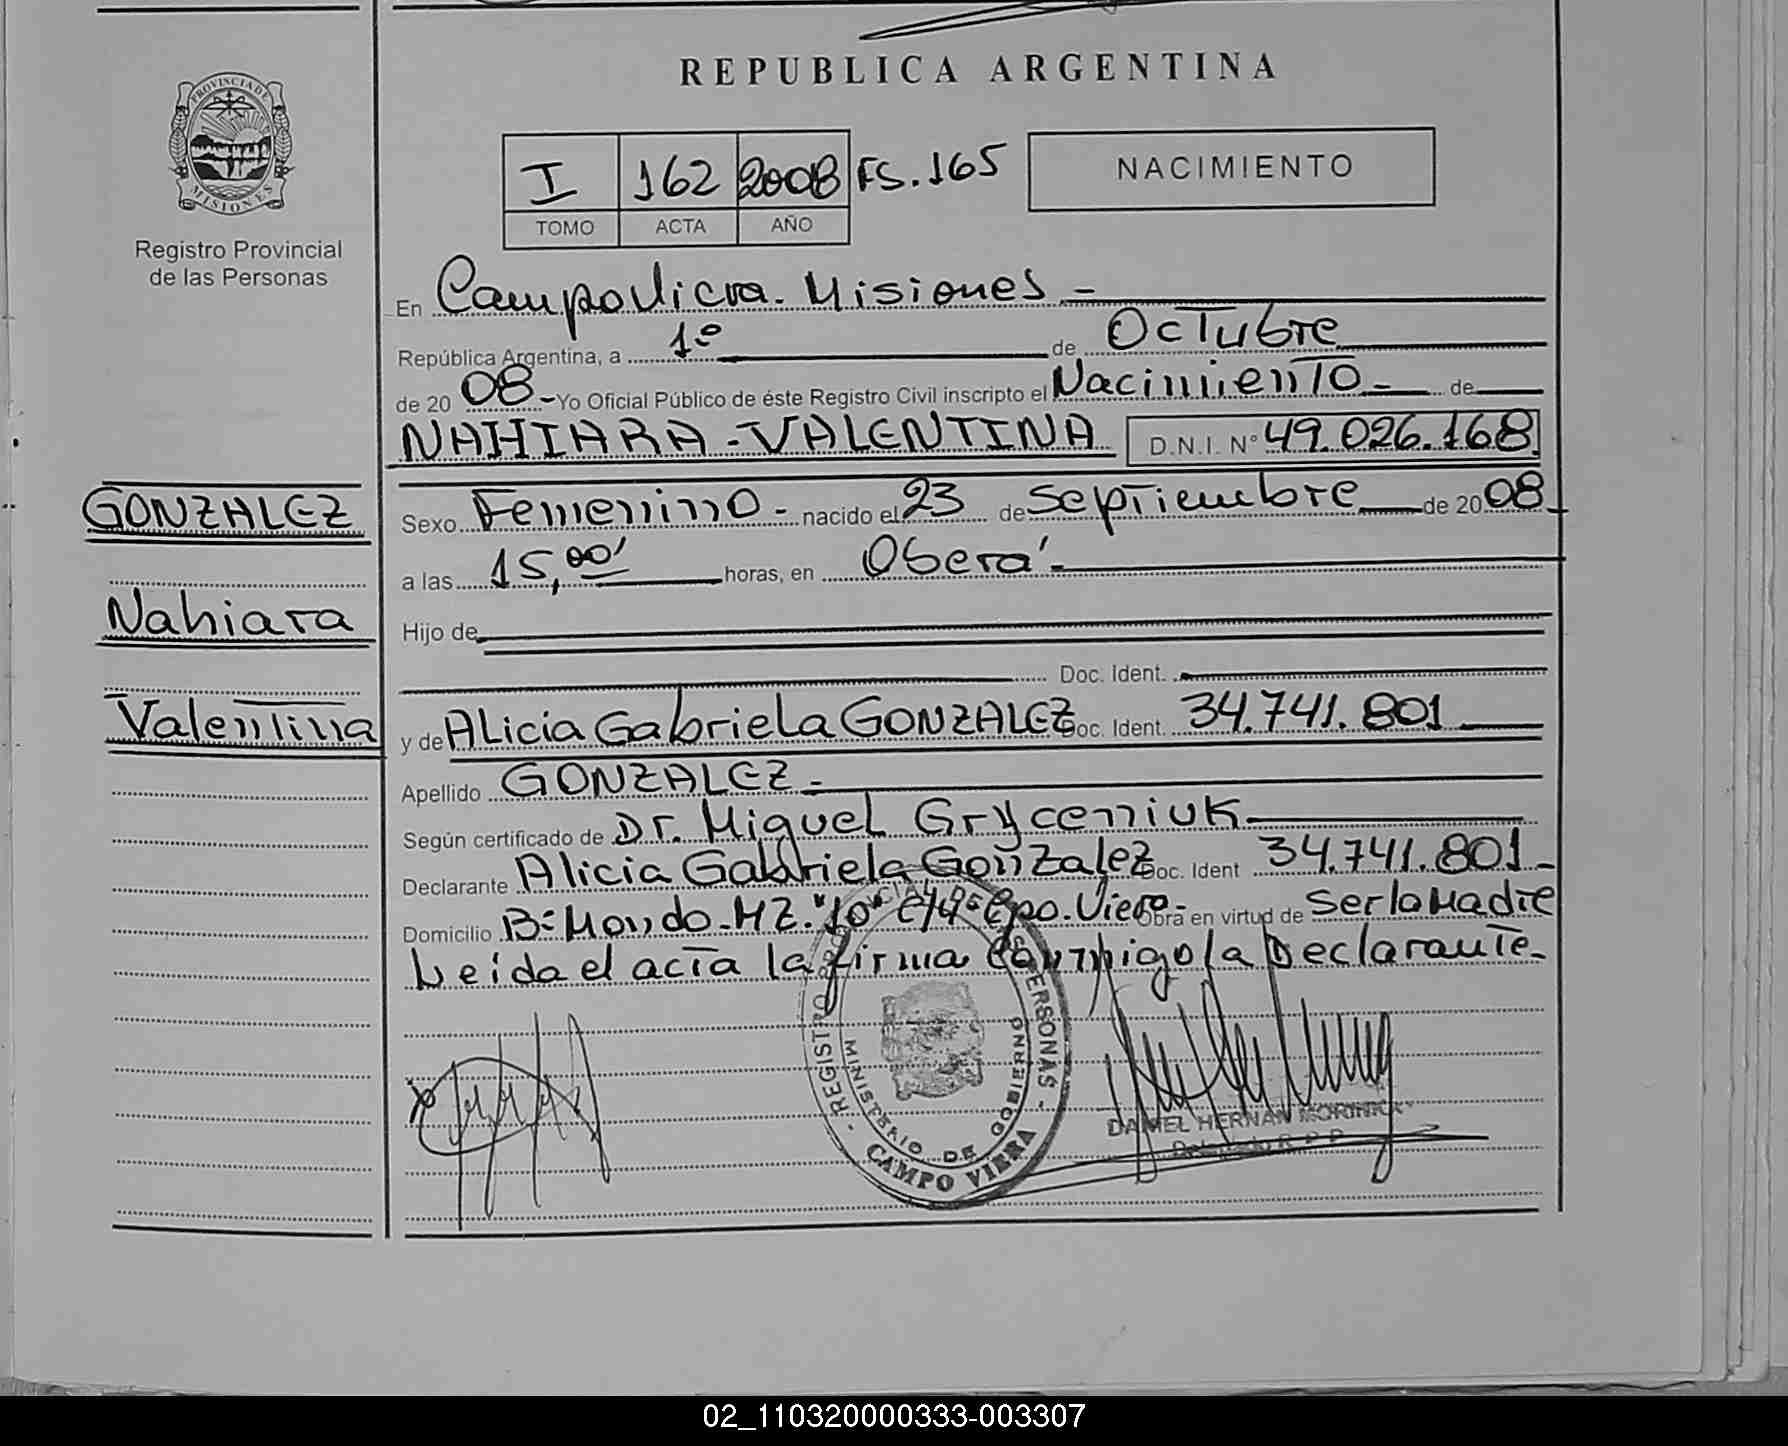 REPUBLICA ARGENTINA
PROVINCIA DE
MISIONES
Registro Provincial
de las Personas
I 162 2008 FS.165
TOMO ACTA AÑO
NACIMIENTO
En Campo Viera. Misiones -
República Argentina, a 1º de Octubre
de 20 08 - Yo Oficial Público de éste Registro Civil inscripto el Nacimiento - de
NAHIARA - VALENTINA D.N.I. Nº 49.026.168
GONZALEZ
Nahiara
Valentina
Sexo Femenino - nacido el 23 de Septiembre de 20 08
a las 15,00' horas, en Oberá -
Hijo de
Doc. Ident.
y de Alicia Gabriela GONZALEZ Doc. Ident. 34.741.801
Apellido GONZALEZ -
Según certificado de Dr. Miguel Gryceniuk
Declarante Alicia Gabriela Gonzalez Doc. Ident 34.741.801 -
Domicilio Bº Mondo - MZ. "10" Cpo. Viera - Obra en virtud de Ser la Madre
Leida el acta la firma conmigo la Declarante -
- REGISTRO PERSONAS -
MINISTERIO DE GOBIERNO
CAMPO VIERA
DANIEL HERNAN
02_110320000333-003307